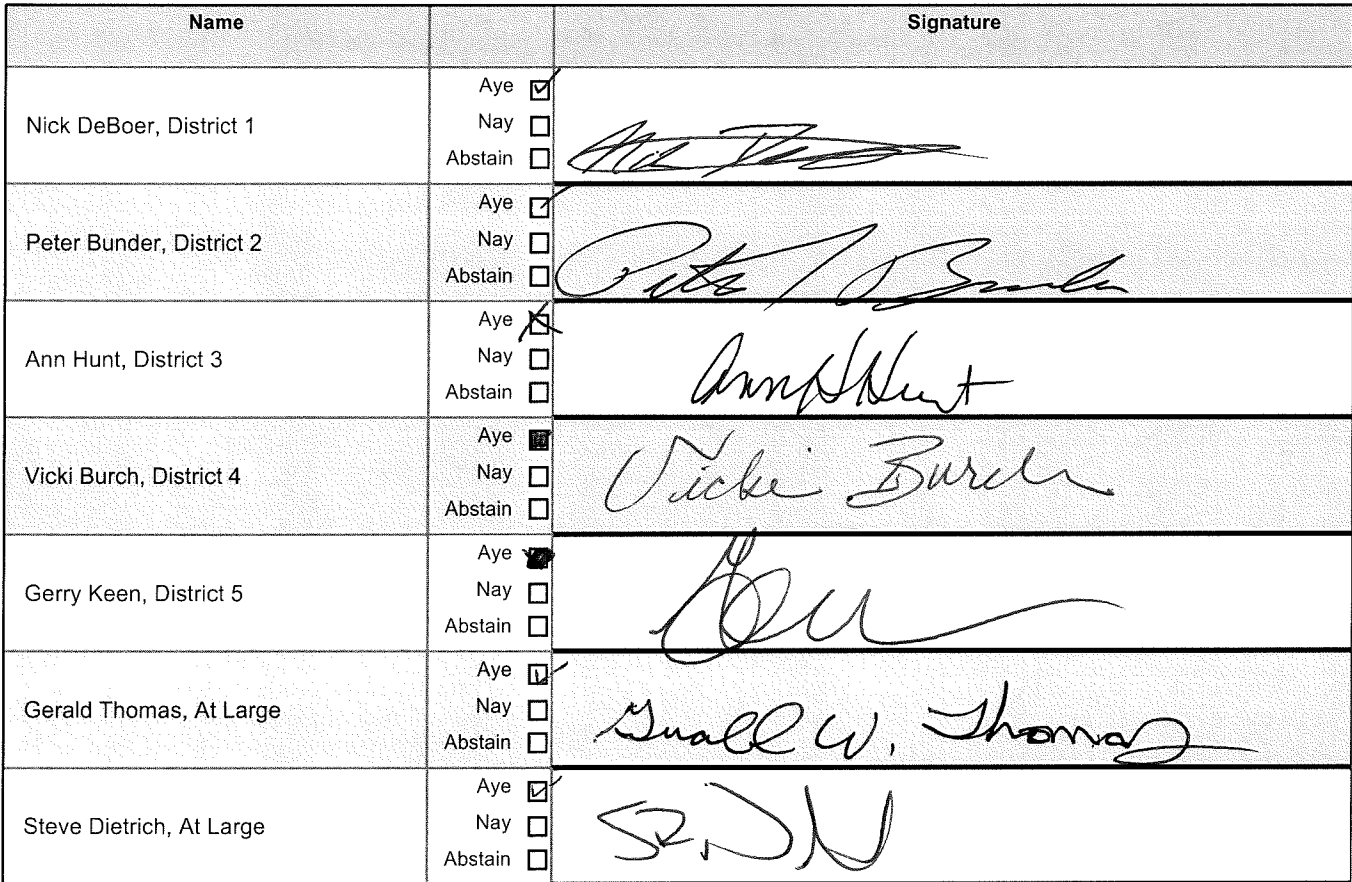 Name Signature
Nick DeBoer, District 1
Aye ☑
Nay ☐
Abstain ☐
Peter Bunder, District 2
Aye ☑
Nay ☐
Abstain ☐
Peter Bunder
Ann Hunt, District 3
Aye ☒
Nay ☐
Abstain ☐
Ann H Hunt
Vicki Burch, District 4
Aye ■
Nay ☐
Abstain ☐
Vicki Burch
Gerry Keen, District 5
Aye ■
Nay ☐
Abstain ☐
Gerald Thomas, At Large
Aye ☑
Nay ☐
Abstain ☐
Gerald W. Thomas
Steve Dietrich, At Large
Aye ☑
Nay ☐
Abstain ☐